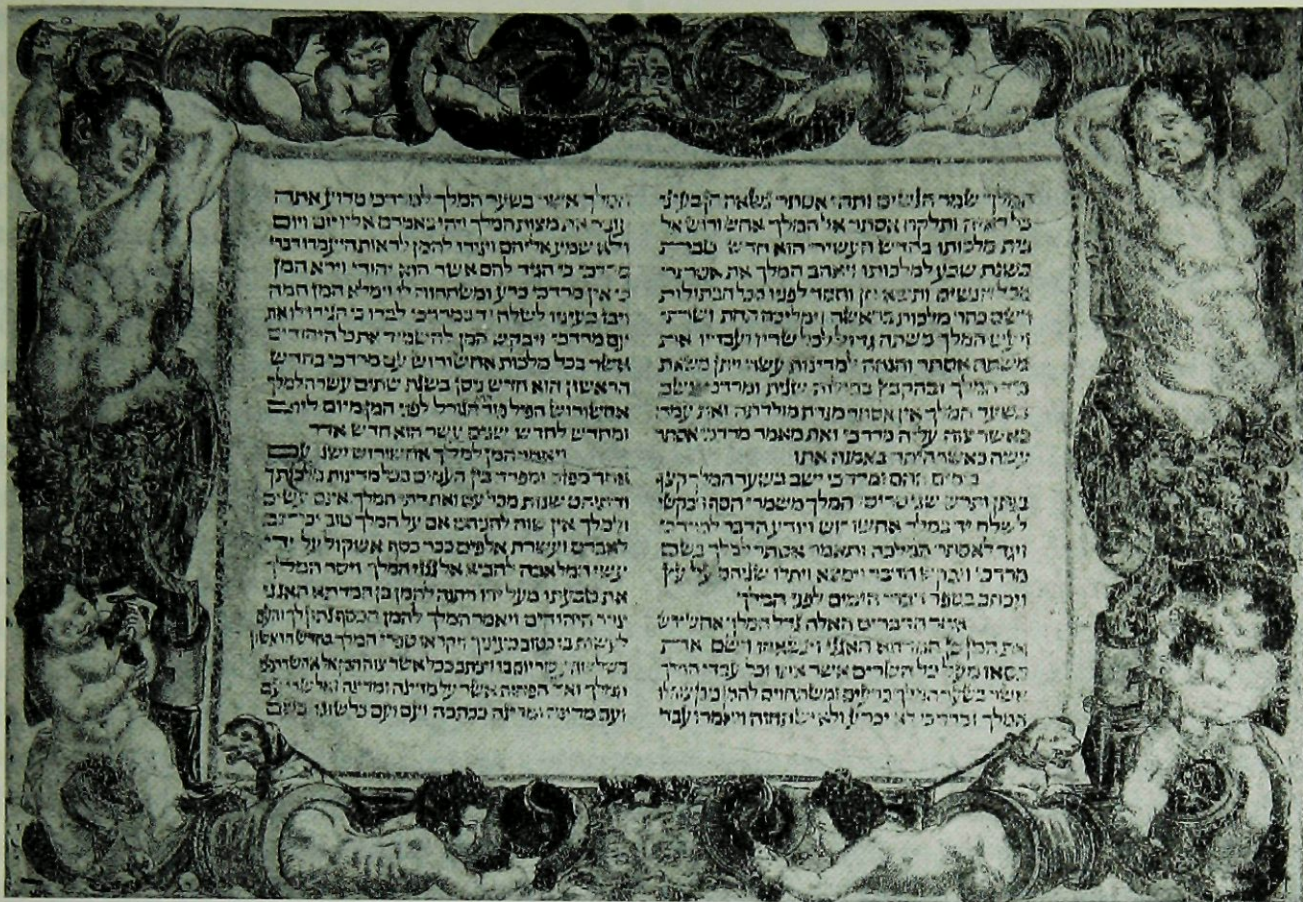 המלך שמר הנשים ותהי אסתר נשאת חן בעיני
כל ראיה ותלקח אסתר אל המלך אחשורוש אל
בית מלכותו בחדש העשירי הוא חדש טבת
בשנת שבע למלכותו ויאהב המלך את אסתר
מכל הנשים ותשא חן וחסד לפניו מכל הבתולות
וישם כתר מלכות בראשה וימליכה תחת ושתי
ויעש המלך משתה גדול לכל שריו ועבדיו את
משתה אסתר והנחה למדינות עשה ויתן משאת
כיד המלך ובהקבץ בתולות שנית ומרדכי ישב
בשער המלך אין אסתר מגדת מולדתה ואת עמה
כאשר צוה עליה מרדכי ואת מאמר מרדכי אסתר
עשה כאשר היתה באמנה אתו
בימים ההם ומרדכי ישב בשער המלך קצף
בגתן ותרש שני סריסי המלך משמרי הסף ויבקשו
לשלח יד במלך אחשורוש ויודע הדבר למרדכי
ויגד לאסתר המלכה ותאמר אסתר למלך בשם
מרדכי ויבקש הדבר וימצא ויתלו שניהם על עץ
ויכתב בספר דברי הימים לפני המלך
אחר הדברים האלה גדל המלך אחשורוש
את המן בן המדתא האגגי וינשאהו וישם את
כסאו מעל כל השרים אשר אתו וכל עבדי המלך
אשר בשער המלך כרעים ומשתחוים להמן כי כן צוה לו
המלך ומרדכי לא יכרע ולא ישתחוה ויאמרו עבדי
המלך אשר בשער המלך למרדכי מדוע אתה
עובר את מצות המלך ויהי באמרם אליו יום ויום
ולא שמע אליהם ויגידו להמן לראות היעמדו דברי
מרדכי כי הגיד להם אשר הוא יהודי וירא המן
כי אין מרדכי כרע ומשתחוה לו וימלא המן חמה
ויבז בעיניו לשלח יד במרדכי לבדו כי הגידו לו את
עם מרדכי ויבקש המן להשמיד את כל היהודים
אשר בכל מלכות אחשורוש עם מרדכי בחדש
הראשון הוא חדש ניסן בשנת שתים עשרה למלך
אחשורוש הפיל פור הוא הגורל לפני המן מיום ליום
ומחדש לחדש שנים עשר הוא חדש אדר
ויאמר המן למלך אחשורוש ישנו עם
אחד מפזר ומפרד בין העמים בכל מדינות מלכותך
ודתיהם שנות מכל עם ואת דתי המלך אינם עשים
ולמלך אין שוה להניחם אם על המלך טוב יכתב
לאבדם ועשרת אלפים ככר כסף אשקול על ידי
עשי המלאכה להביא אל גנזי המלך ויסר המלך
את טבעתו מעל ידו ויתנה להמן בן המדתא האגגי
צרר היהודים ויאמר המלך להמן הכסף נתון לך והעם
לעשות בו כטוב בעיניך ויקראו ספרי המלך בחדש הראשון
בשלושה עשר יום בו ויכתב ככל אשר צוה המן אל אחשדרפני
המלך ואל הפחות אשר על מדינה ומדינה ואל שרי עם
ועם מדינה ומדינה ככתבה ועם ועם כלשונו בשם